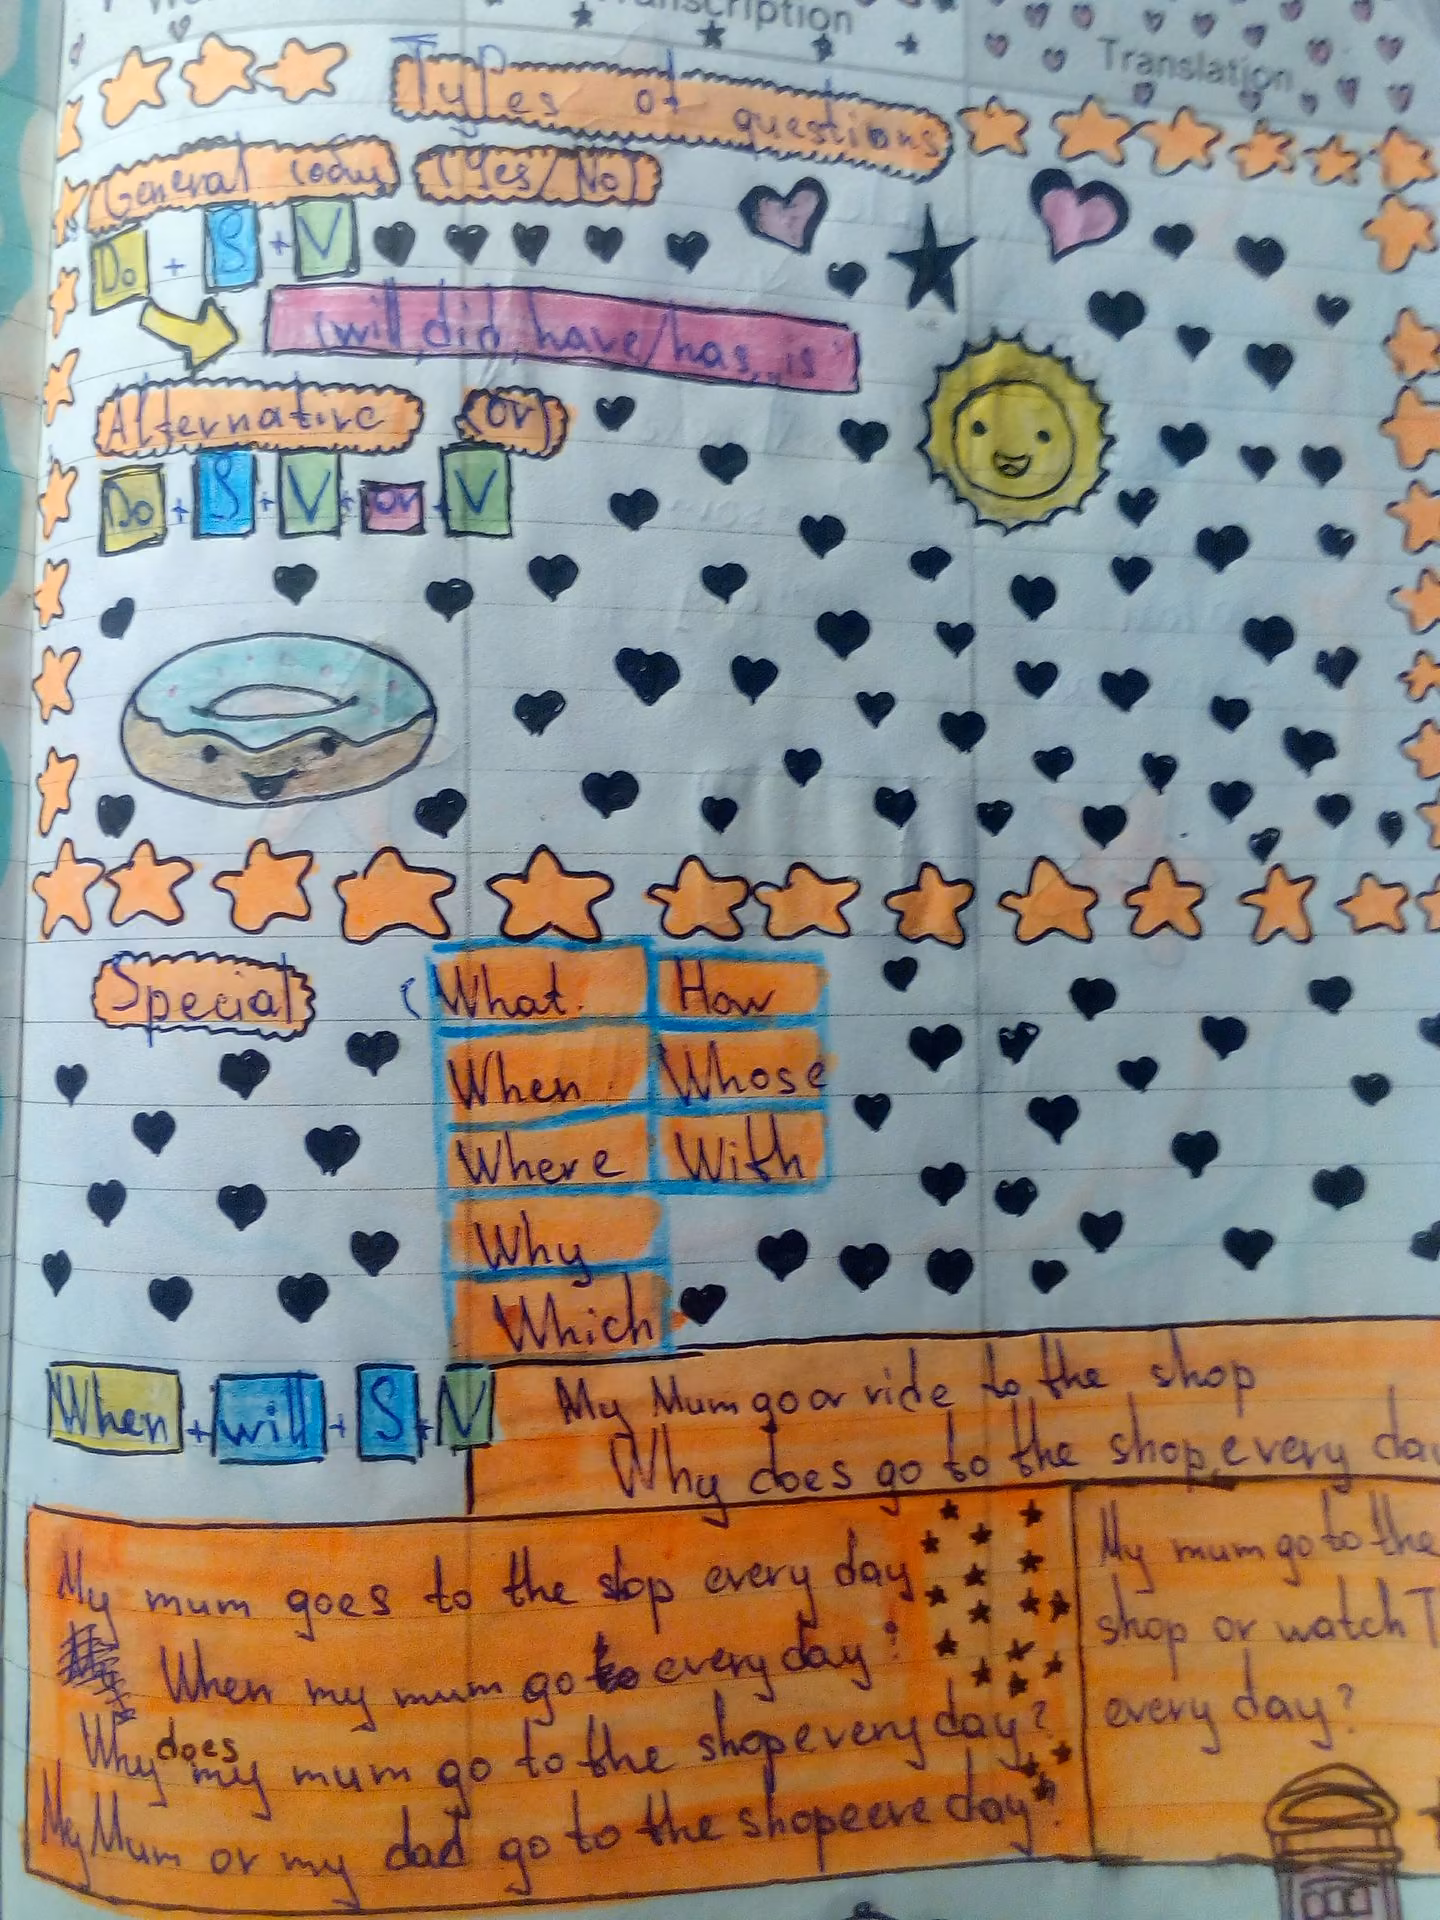 Transcription
Translation
Types of questions
General (общ) (Yes/No)
Do + S + V
(will, did, have/has, is)
Alternative (or)
Do + S + V + or + V
Special (What. How
When. Whose
Where With
Why
Which
When + will + S + V
My Mum go or ride to the shop
Why does go to the shop every
My mum goes to the stop every day
When my mum go to every day?
Why does my mum go to the shop every day?
My Mum or my dad go to the shop eere day?
My mum go to the
shop or watch T
every day?